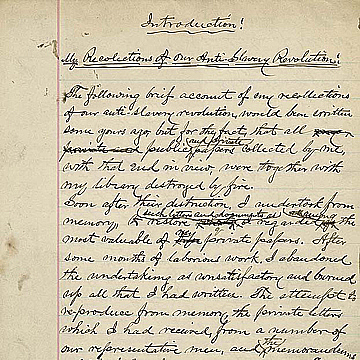 Introduction!
My Recolections of our Anti-Slavery Revolution!
The following brief account of my recollections
of our anti-slavery revolution, would been written
some years ago, but for the fact, that all
public and private papers collected by me,
with that end in view, were together with
my library destroyed by fire.
Soon after their distruction, I undertook from
memory, to restore such letters and documents as I regarded the
most valuable of my private papers. After
some months of laborious work, I abandoned
the undertaking as unsatisfactory, and burned
up all that I had written. The attempt to
re-produce from memory, the private letters
which I had received from a number of
our representative men, and the memorandums